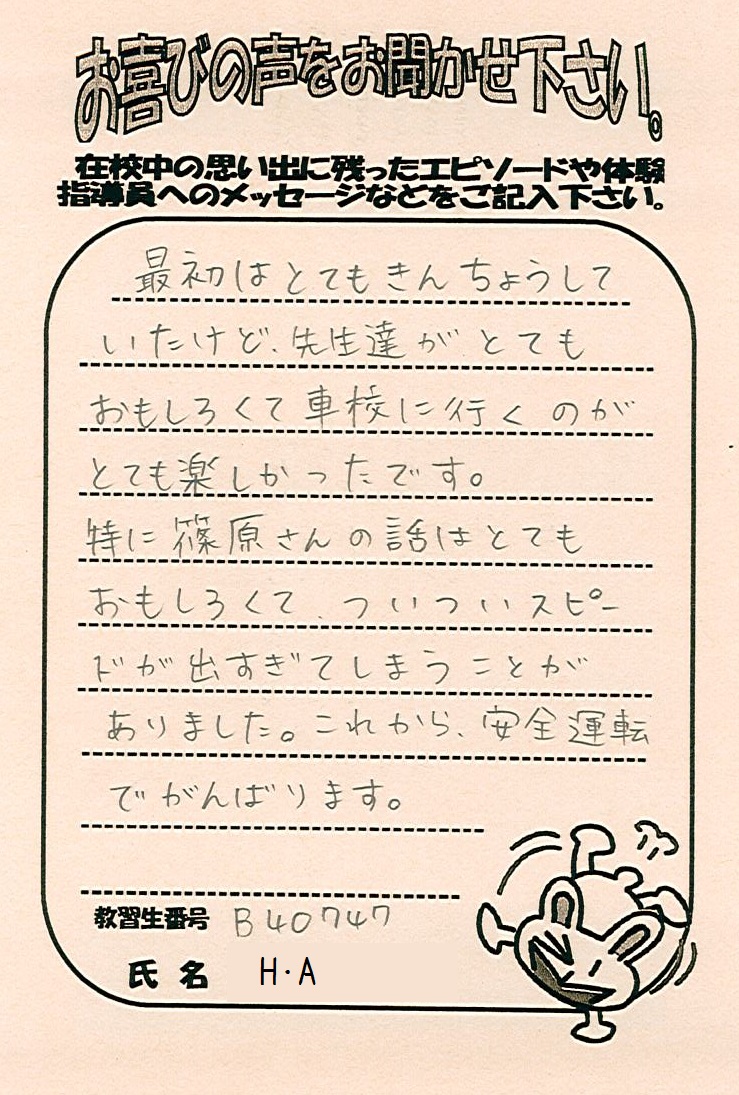 お喜びの声をお聞かせ下さい。
在校中の思い出に残ったエピソードや体験
指導員へのメッセージなどをご記入下さい。
最初はとてもきんちょうして
いたけど、先生達がとても
おもしろくて車校に行くのが
とても楽しかったです。
特に篠原さんの話はとても
おもしろくて、ついついスピー
ドが出すぎてしまうことが
ありました。これから、安全運転
でがんばります。
教習生番号 B40747
氏名 H・A